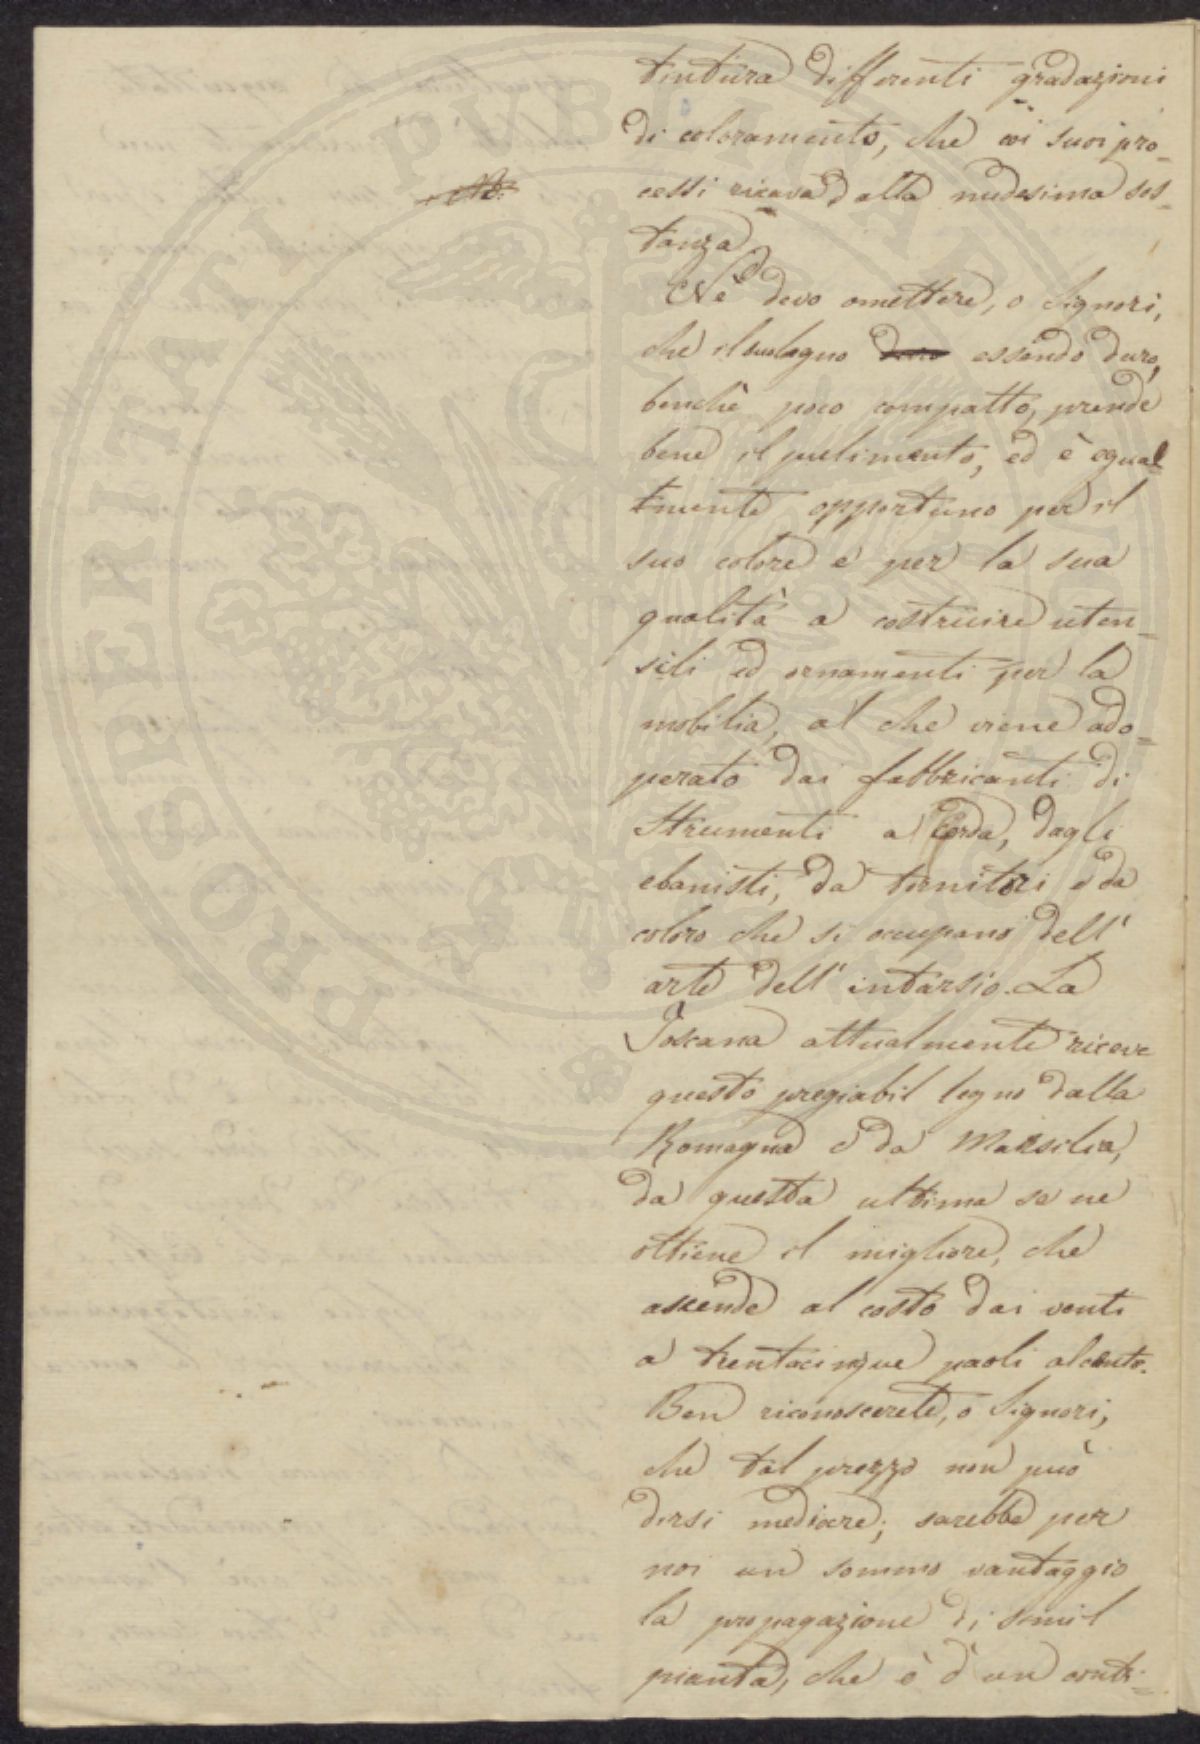 tintura differenti gradazioni
di coloramento, che coi suoi pro-
cessi ricava dalla medesima sos-
tanza.
Nè devo omettere, o Signori,
che il suo legno duro essendo duro,
benchè poco compatto, prende
bene il pulimento, ed è egual-
tmente opportuno per il
suo colore e per la sua
qualità a costruire uten-
sili ed ornamenti per la
mobilia, al che viene ado-
perato dai fabbricanti di
Strumenti a Corda, dagli
ebanisti, da tornitori e da
coloro che si occupano dell'
arte dell' intarsio. La
Toscana attualmente riceve
questo pregiabil legno dalla
Romagna e da Marsilia,
da questa ultima se ne
ottiene il migliore, che
ascende al costo dai venti
a trentacinque paoli al cento.
Ben riconoscerete, o Signori,
che tal prezzo non può
dirsi mediocre; sarebbe per
noi un sommo vantaggio
la propagazione di simil
pianta, che è d'un
PROSPERITATI PUBLICAE AUGENDAE